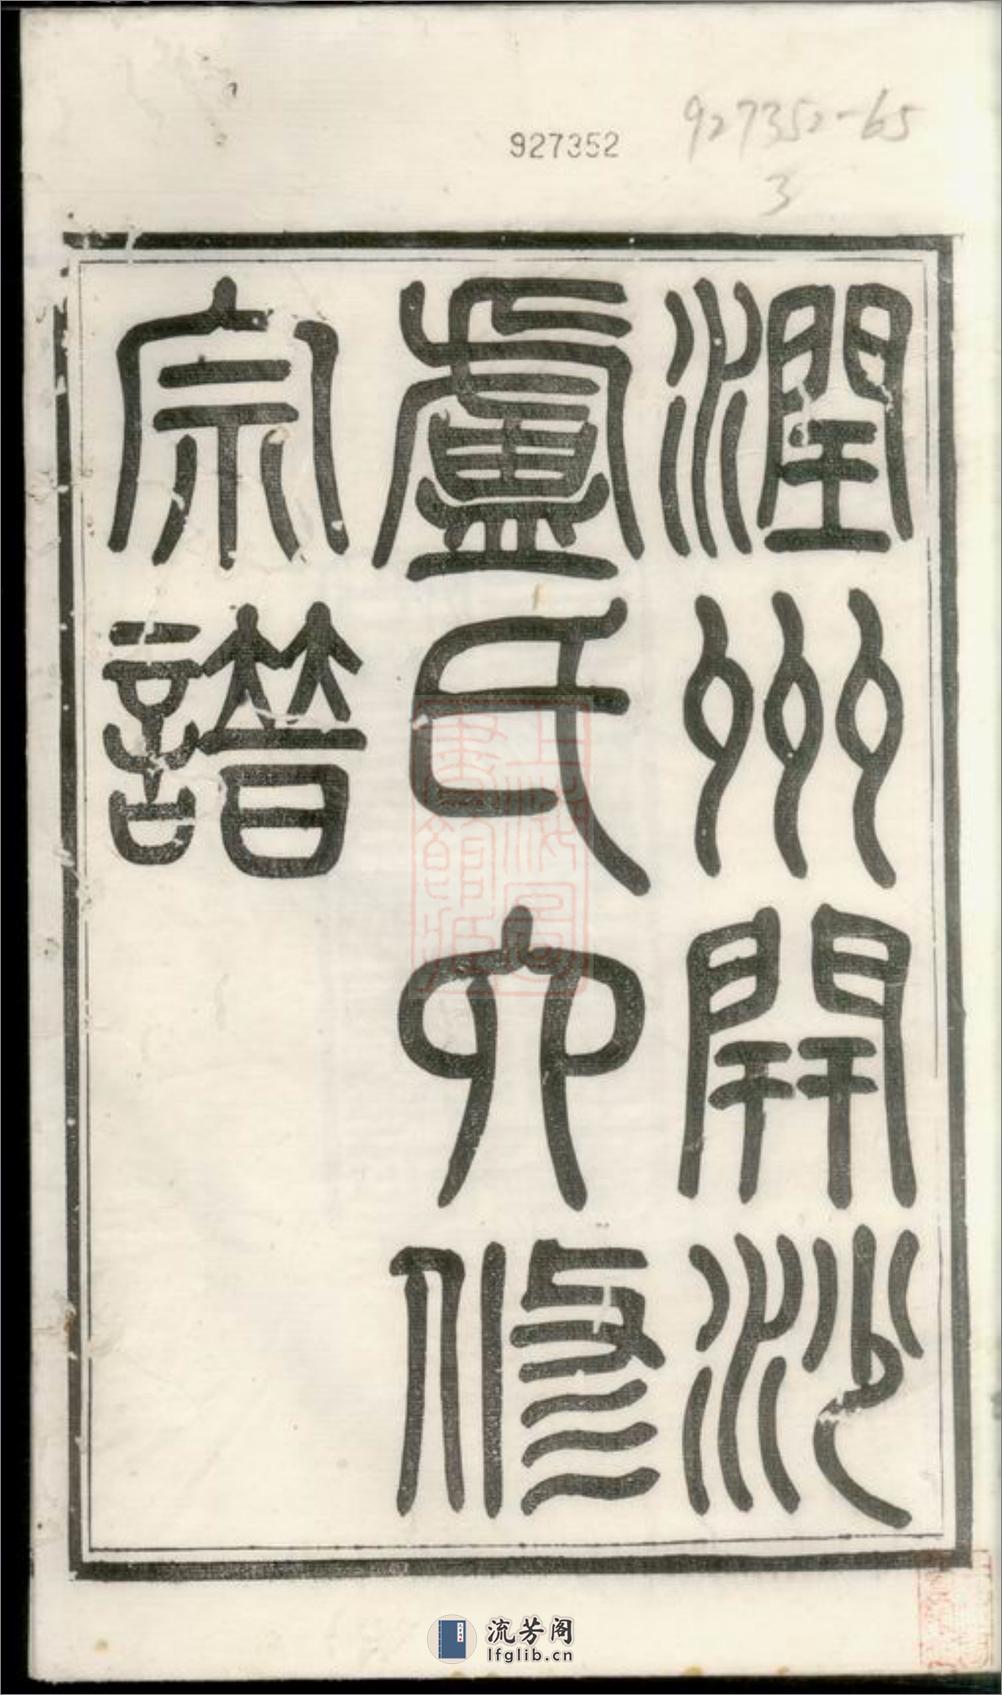 927352
927352-65
3
潤州開沙
盧氏六修
宗譜
上海圖
書館藏
流芳阁
lfglib.cn